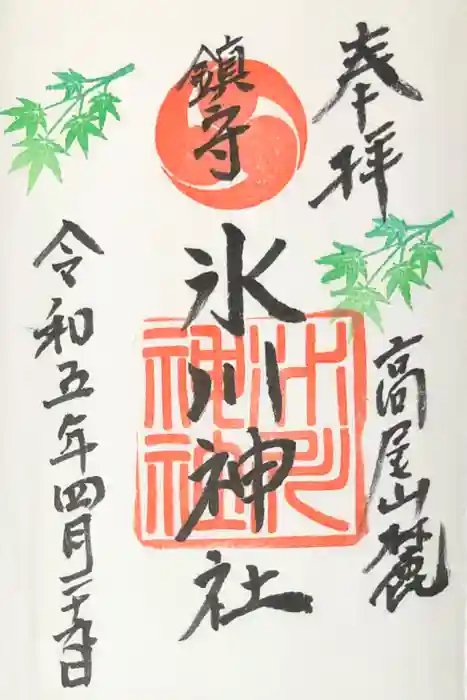 奉拝
高尾山麓
鎮守
氷川神社
氷川神社
令和五年四月二十九日